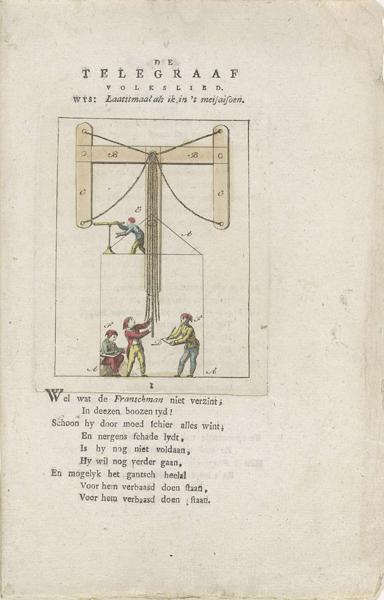 DE
TELEGRAAF
VOLKSLIED.
WYS: Laatstmaal als ik, in 't meisaisoen.
B B
C C
E
A
F F
A A
1
Wel wat de Franschman niet verzint;
In deezen boozen tyd!
Schoon hy door moed schier alles wint;
En nergens schade lydt,
Is hy nog niet voldaan,
Hy wil nog verder gaan,
En mogelyk het gantsch heelal
Voor hem verbaasd doen staan,
Voor hem verbaasd doen staan.